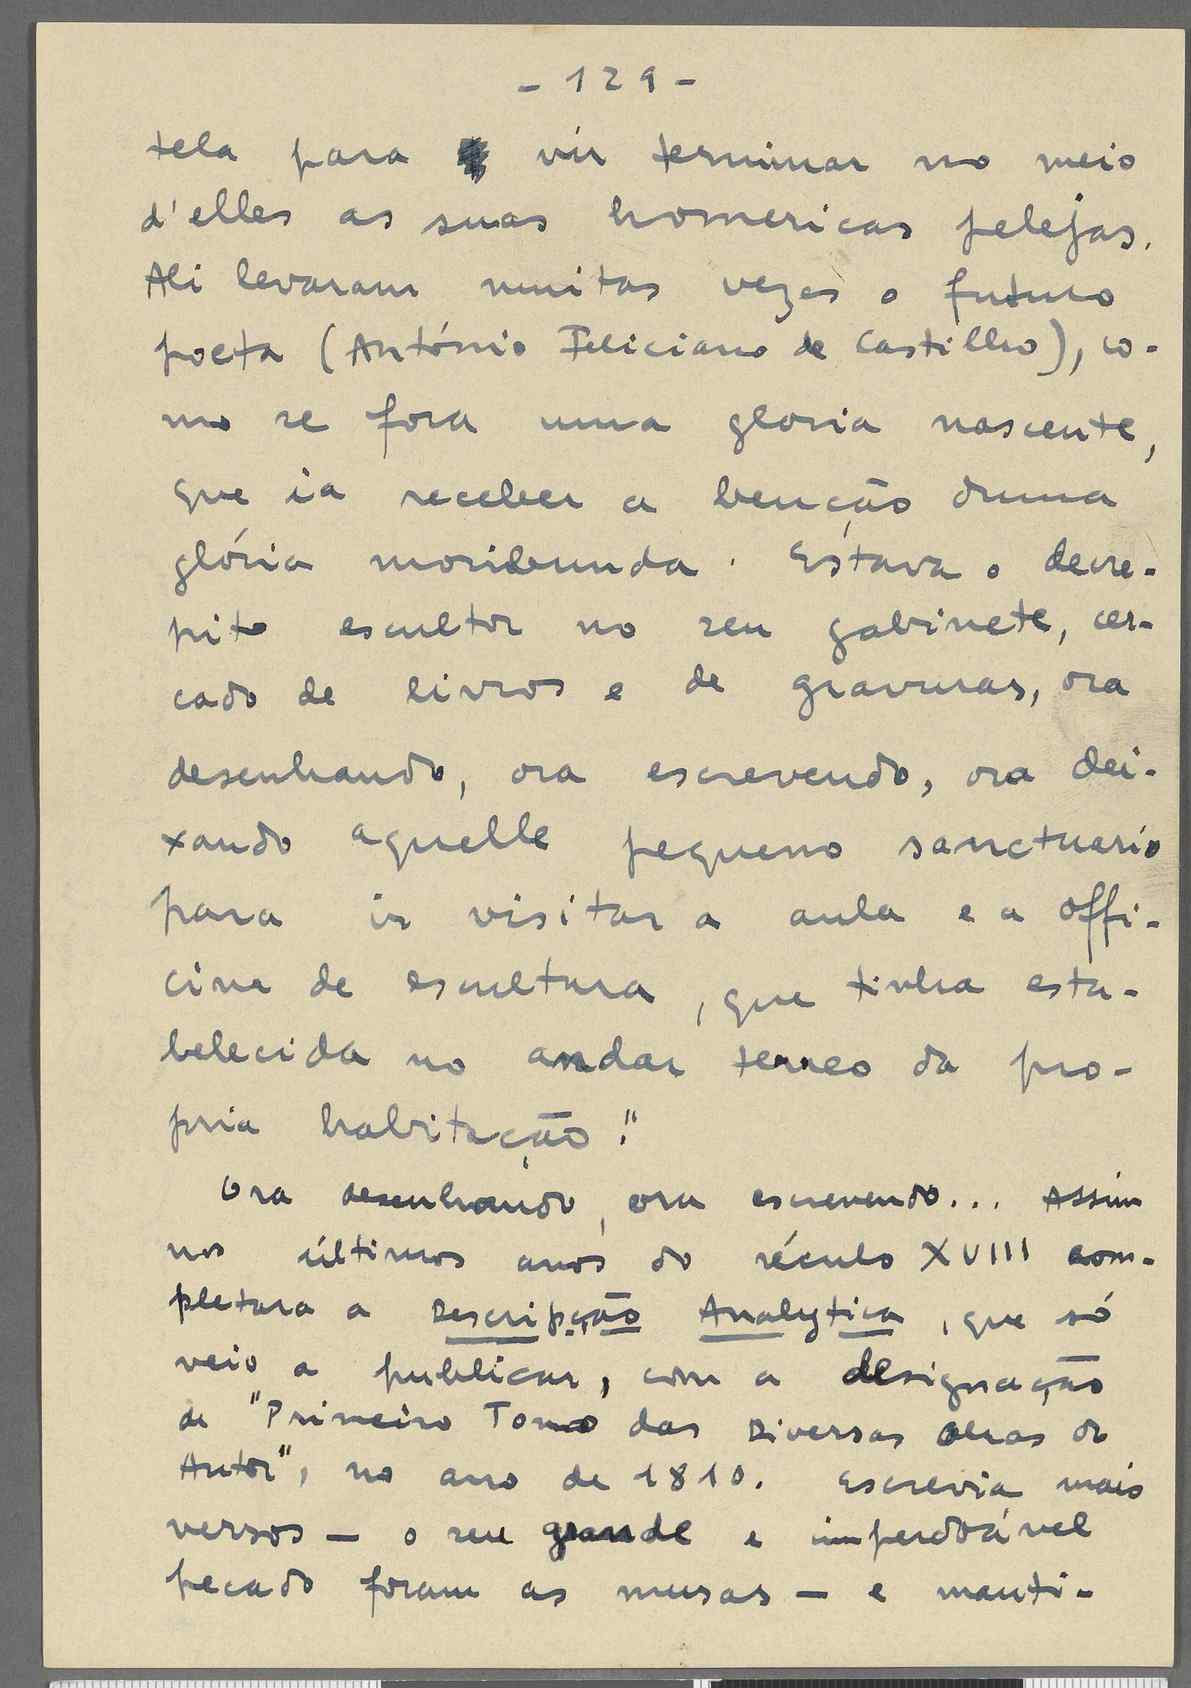 - 129 -
tela para vir terminar no meio
d'elles as suas homericas pelejas.
Ali levaram muitas vezes o futuro
poeta (António Feliciano de Castilho), co-
mo se fora uma gloria nascente,
que ia receber a benção duma
glória moribunda. Estava o decre-
pito escultor no seu gabinete, cer-
cado de livros e de gravuras, ora
desenhando, ora escrevendo, ora dei-
xando aquelle pequeno sanctuario
para ir visitar a aula e a offi-
cina de escultura, que tinha esta-
belecida no andar terreo da pro-
pria habitação."
Ora desenhando, ora escrevendo... Assim
nos últimos anos do século XVIII com-
pletara a Descripção Analytica, que só
veio a publicar, com a designação
de "Primeiro Tomo das Diversas Obras do
Autor", no ano de 1810. Escrevia mais
versos — o seu grande e imperdoável
pecado foram as musas — e manti-